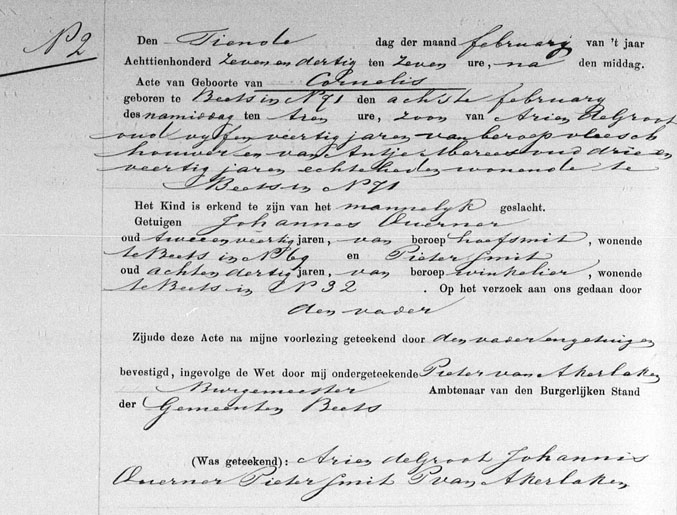 N 2
Den Tiende dag der maand february van 't jaar
Achttienhonderd zeven en dertig ten zeven ure, na den middag.
Acte van Geboorte van Cornelis
geboren te Beets in N 71 den achste february
des namiddag ten drien ure, zoon van Arien de Groot
oud vyf en veertig jaren van beroep vleesch
houwer en van Antje Mooies oud drie en
veertig jaren echtelieden wonende te
Beets in N 71
Het Kind is erkend te zijn van het mannelyk geslacht.
Getuigen Johannes Ouerner
oud twee en veertig jaren, van beroep hoefsmit, wonende
te Beets in N 69 en Pieter Smit
oud acht en dertig jaren, van beroep winkelier, wonende
te Beets in N 32 . Op het verzoek aan ons gedaan door
den vader
Zijnde deze Acte na mijne voorlezing geteekend door den vader en getuigen
bevestigd, ingevolge de Wet door mij ondergeteekende Pieter van Akerlaken
Burgemeester Ambtenaar van den Burgerlijken Stand
der Gemeenten Beets
(Was geteekend): Arien de Groot Johannis
Ouerner Pieter Smit P van Akerlaken